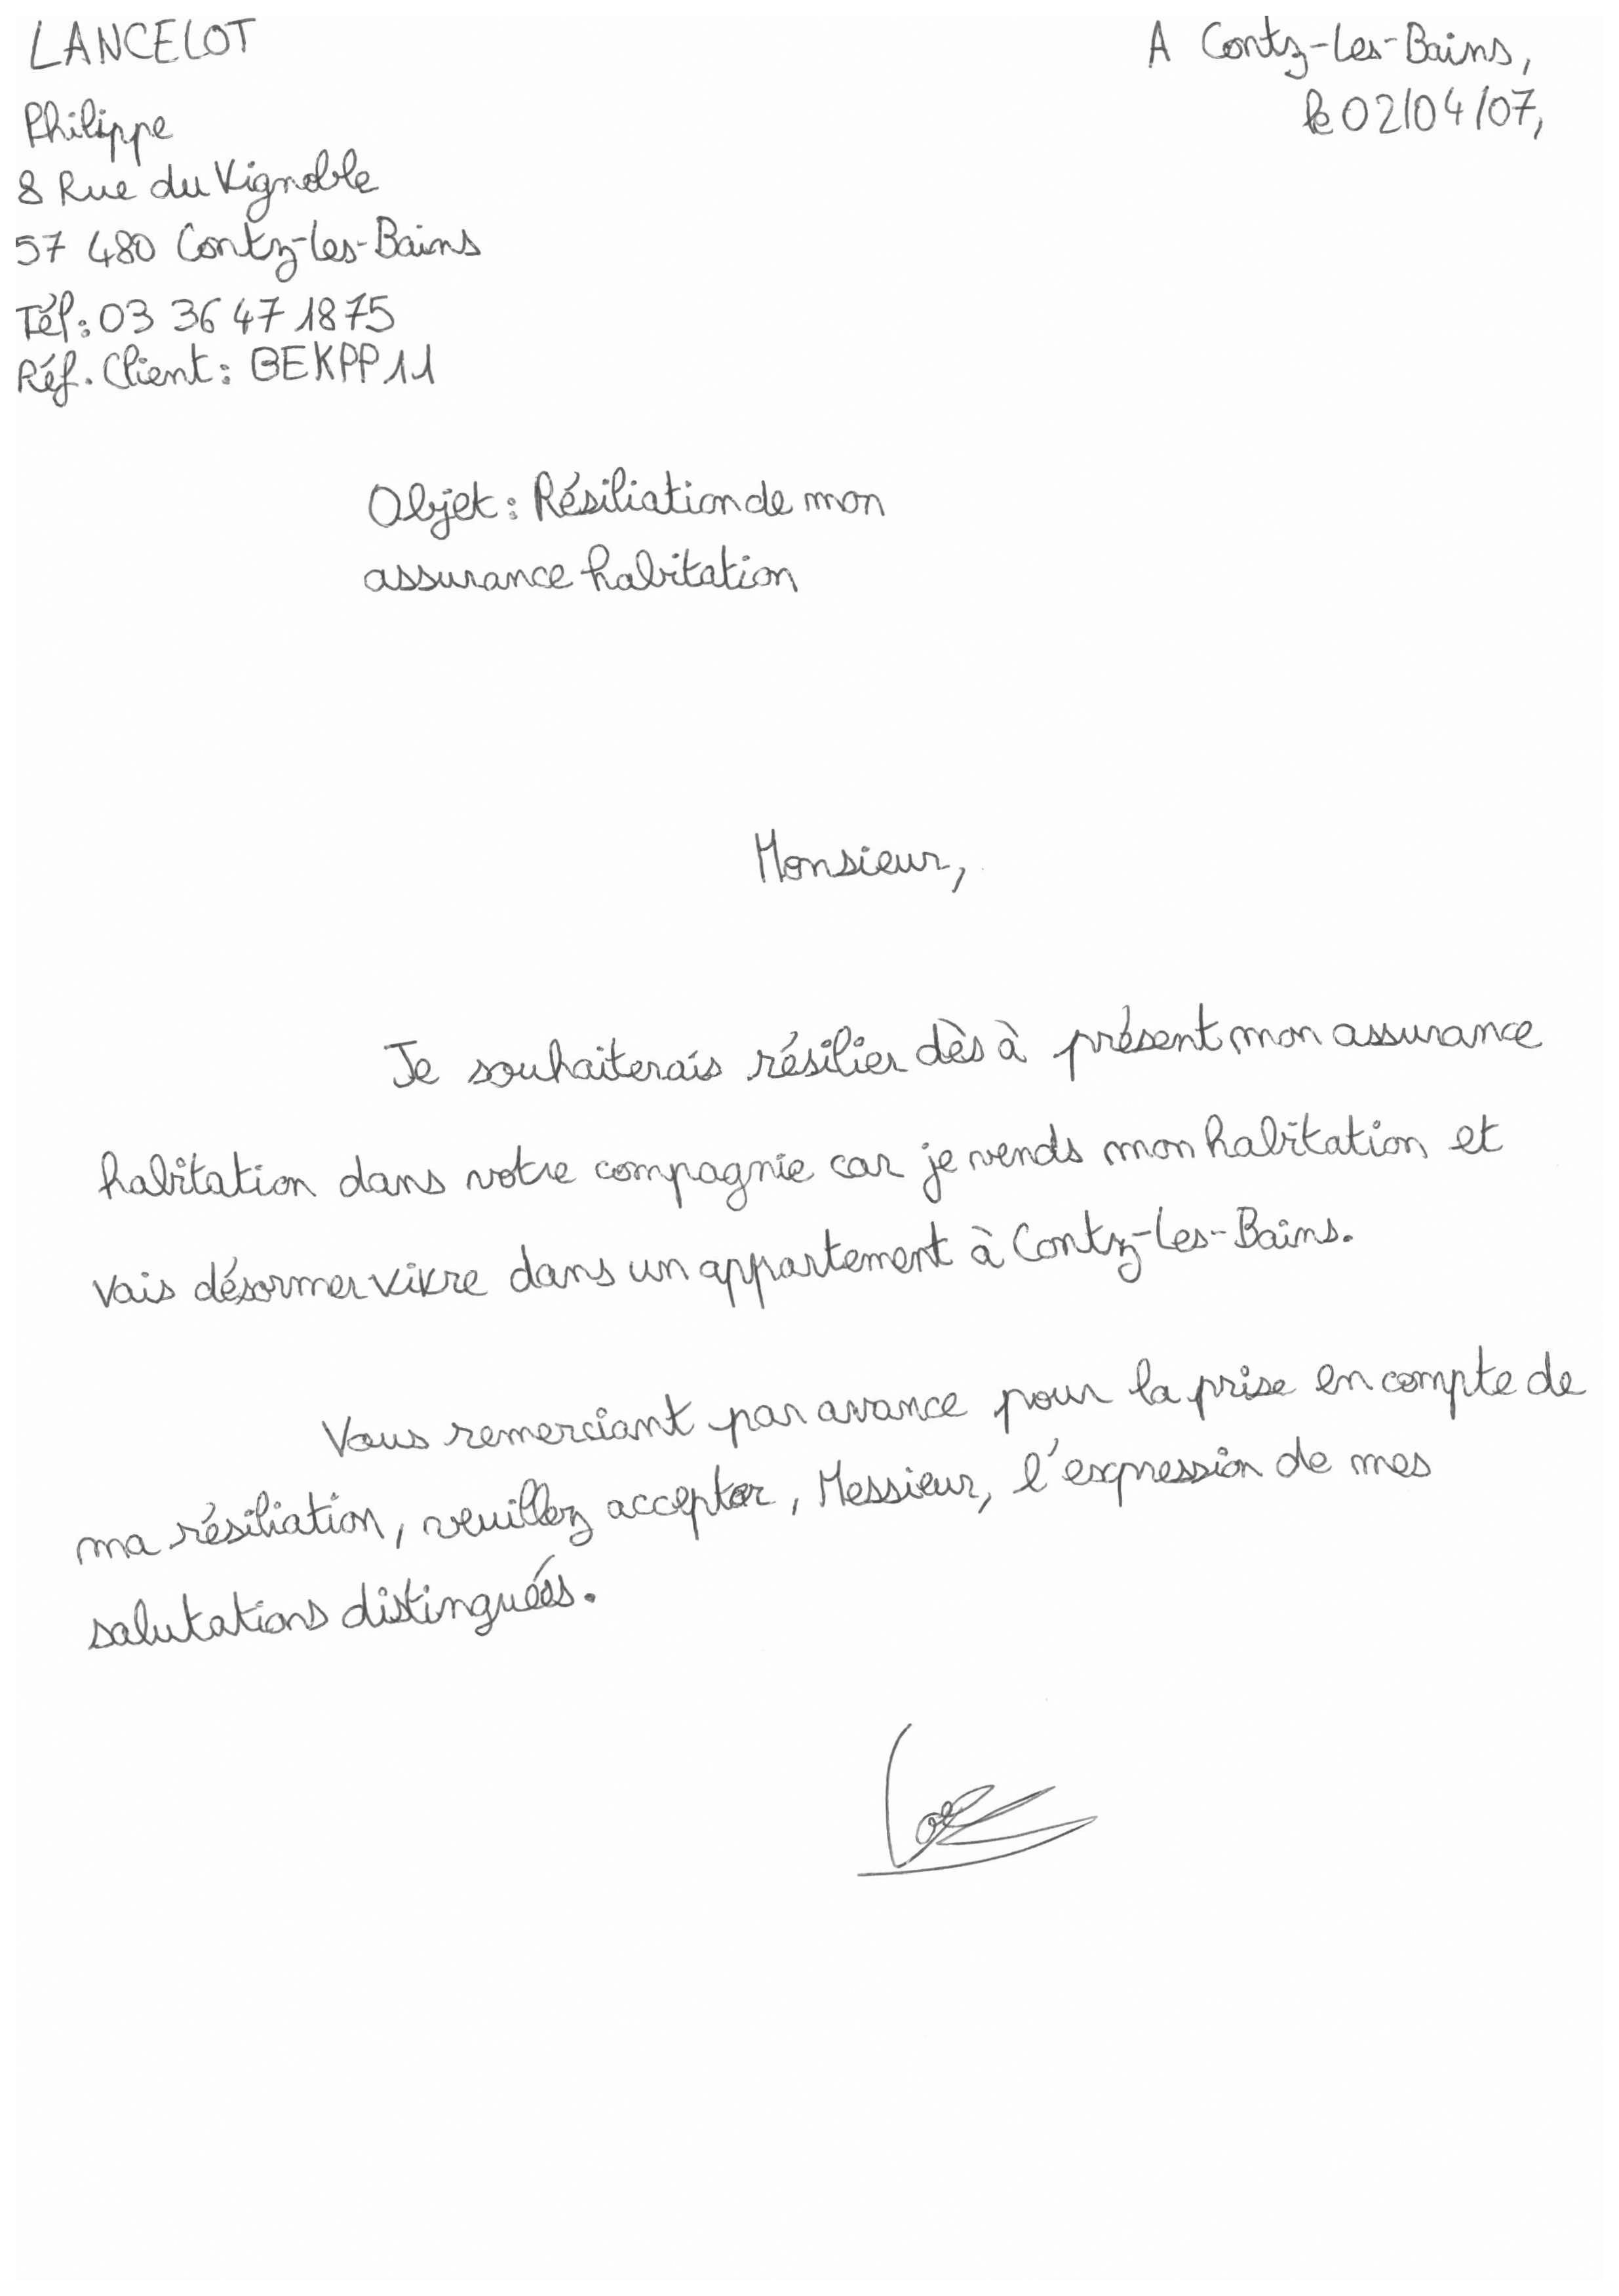 LANCELOT
Philippe
8 Rue du Vignoble
57 480 Contz-les-Bains
Tél : 03 36 47 18 75
Réf. Client : BEKPP11
A Contz-les-Bains,
le 02/04/07,
Objet : Résiliation de mon
assurance habitation
Monsieur,
Je souhaiterais résilier dès à présent mon assurance
habitation dans votre compagnie car je vends mon habitation et
vais désormer vivre dans un appartement à Contz-les-Bains.
Vous remerciant par avance pour la prise en compte de
ma résiliation, veuillez accepter, Messieur, l'expression de mes
salutations distinguées.